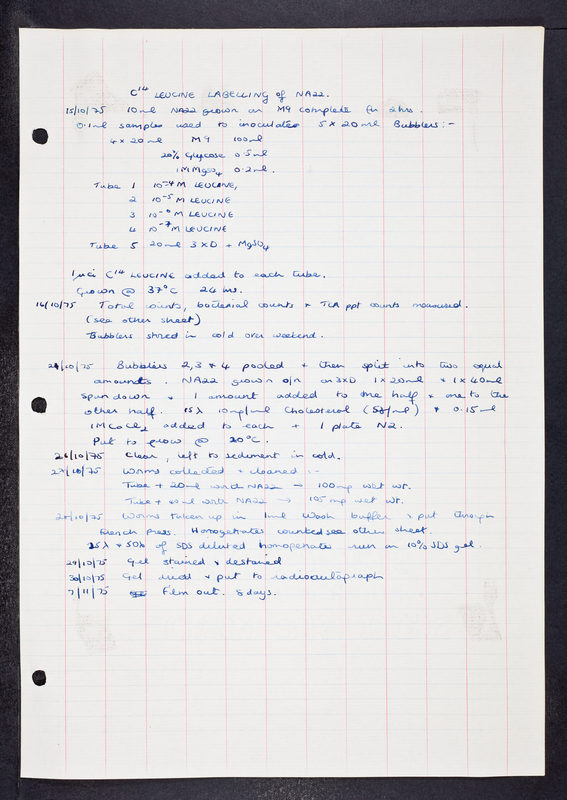 C14 LEUCINE LABELLING of NA22.
15/10/75 10ml NA22 grown on M9 complete for 2hrs.
0.1ml samples used to inoculate 5 x 20ml Bubblers:-
4 x 20ml M9 100ml
20% Glycose 0.5ml
1M MgSO4 0.2ml.
Tube 1 10-4 M LEUCINE,
2 10-5 M LEUCINE
3 10-6 M LEUCINE
4 10-7 M LEUCINE
Tube 5 20ml 3XD + MgSO4
1µci C14 LEUCINE added to each tube.
Grown @ 37°C 24 hrs.
16/10/75 Total counts, bacterial counts + TCA ppt counts measured.
(see other sheet)
Bubblers stored in cold over weekend.
/10/75 Bubblers 2,3 + 4 pooled + then split into two equal
amounts. NA22 grown o/n on 3XD 1x20ml + 1x40ml
Spun down + 1 amount added to one half + one to the
other half. 15λ 10mg/ml Cholesterol (/ml) + 0.15ml
1M CaCl2 added to each + 1 plate N2.
Put to grow @ 20°C.
26/10/75 Clear, left to sediment in cold.
27/10/75 Worms collected + cleaned :-
Tube + 20ml worth NA22 → 100mg wet wt.
Tube + 40ml worth NA22 → 105mg wet wt.
28/10/75 Worms taken up in 1ml Wash buffer + put through
French Press. Homogenates counted see other sheet.
25λ + 50λ of SDS diluted homogenates run on 10% SDS gel.
29/10/75 Gel stained + destained
30/10/75 Gel dried + put to radioautograph
7/11/75 Film out. 8 days.